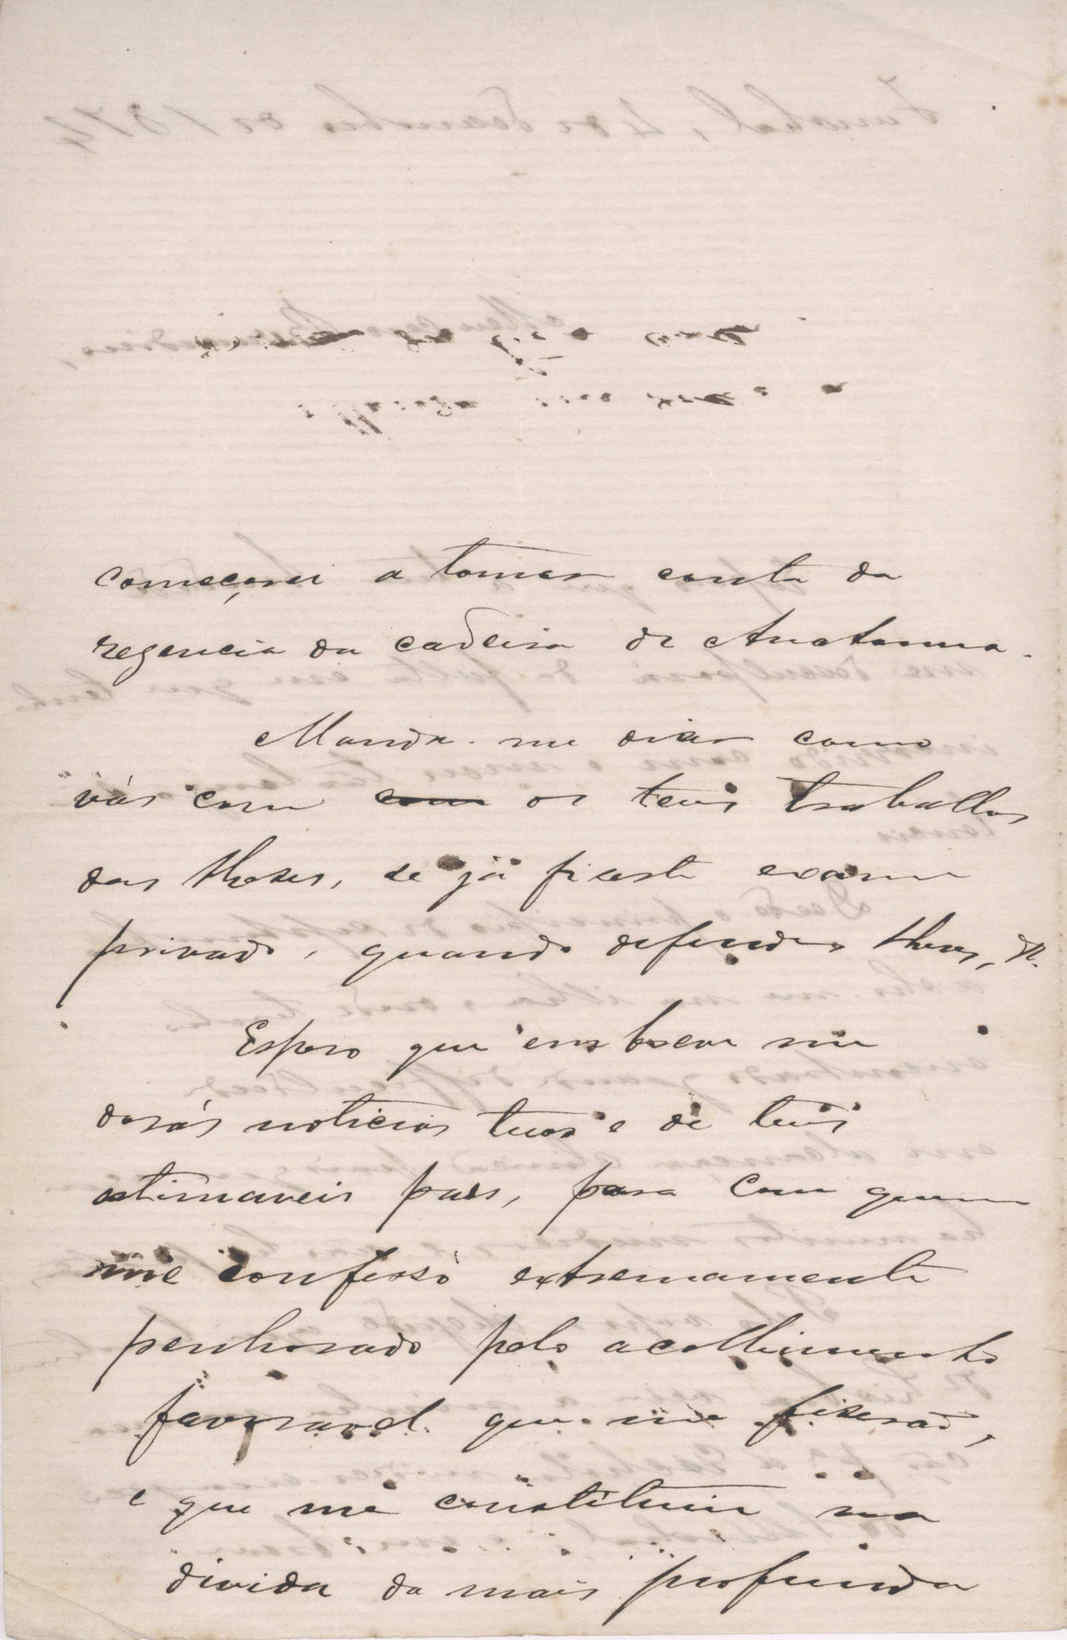 começarei a tomar conta da
regencia da cadeira de Anatomia.
Manda-me dizer como
vás com com os teus trabalhos
das theses, se já fizeste exame
privado, quando defendes theses, &.
Espero que em breve me
darás noticias tuas e de teus
estimaveis paes, para com quem
me confesso extremamente
penhorado pelo acolhimento
favoravel que me fizerão,
e que me constituiu na
divida da mais profunda